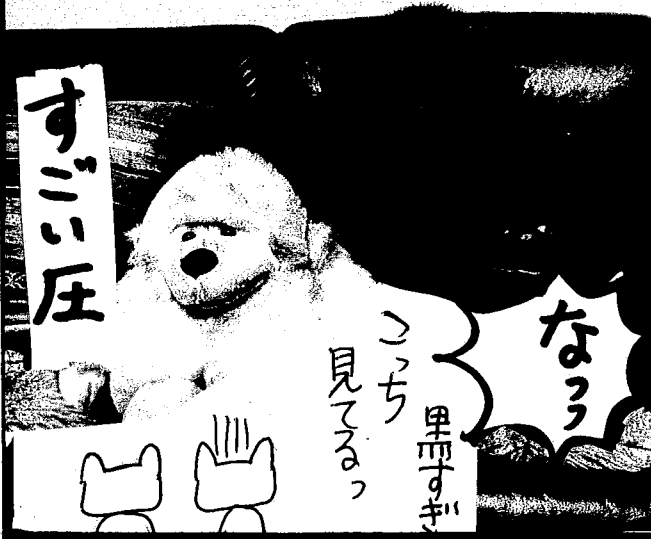 すごい圧
なっっ
こっち
見てるっ
黒すぎ